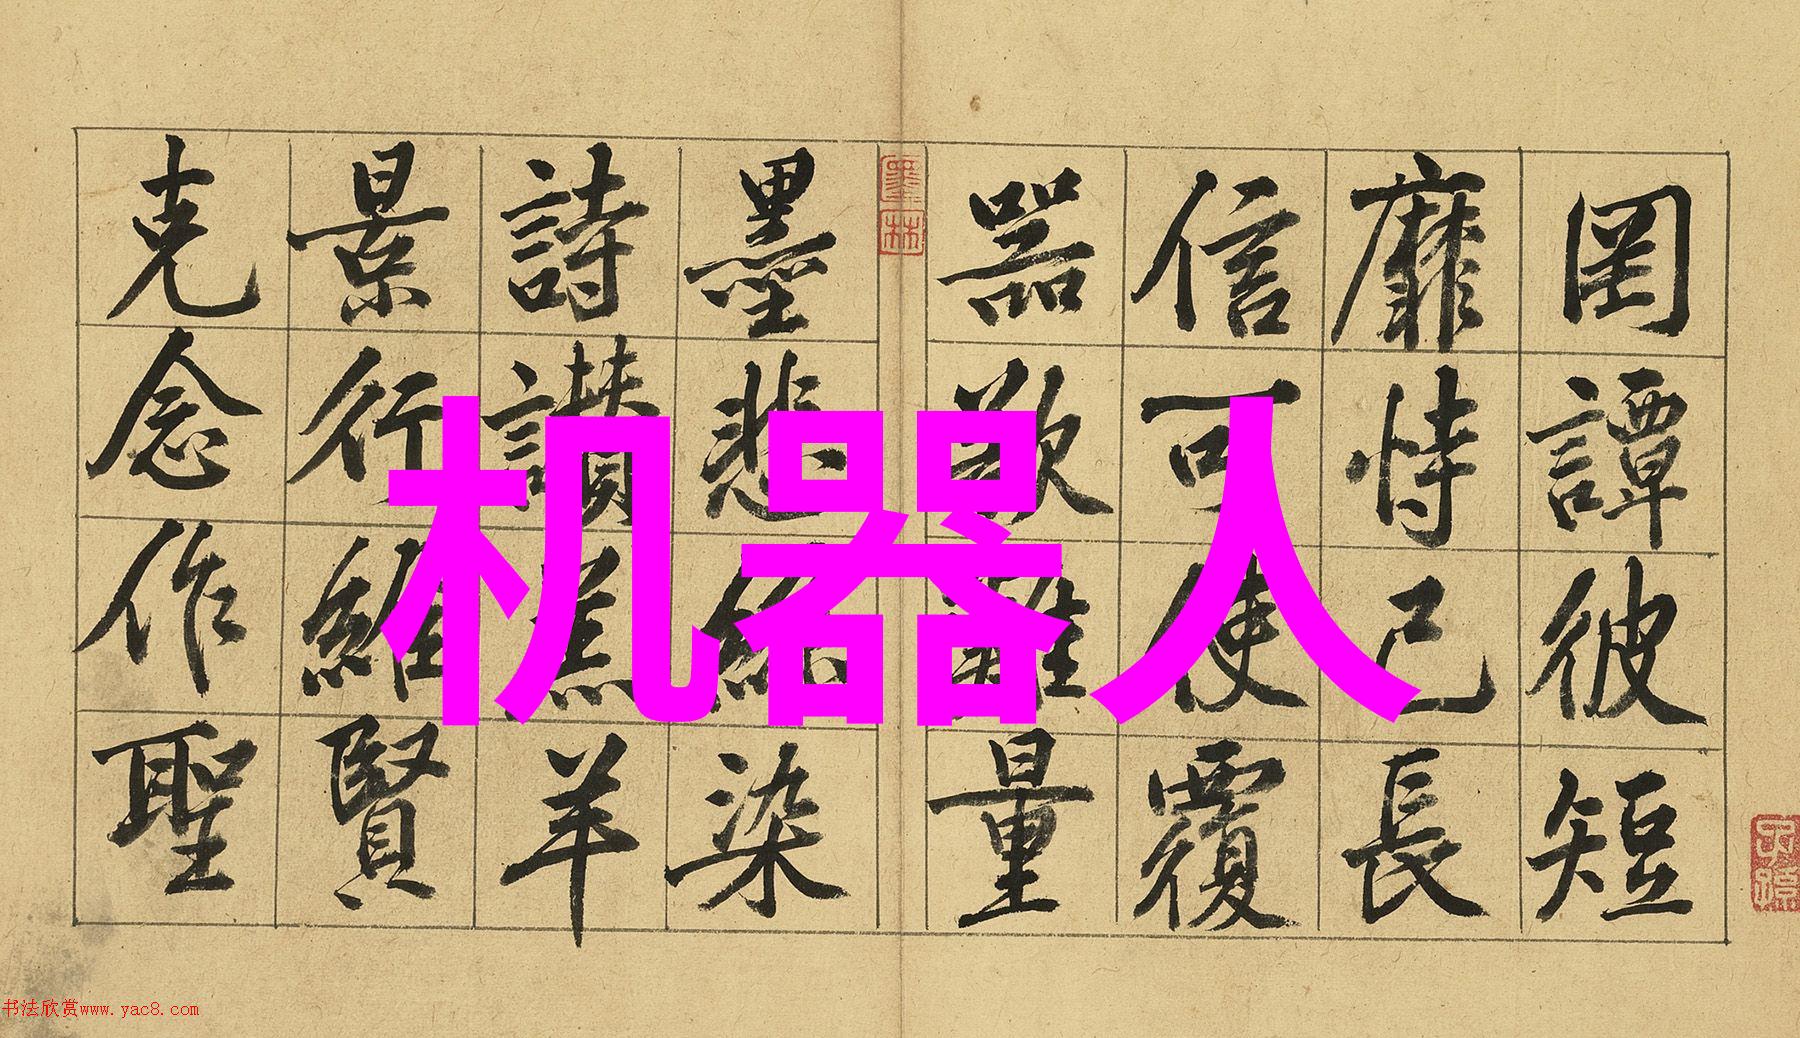 罔譚彼短
靡恃己長
信可使覆
器欲難量
墨悲絲染
詩讃羔羊
景行維賢
克念作聖
机器人
墨林
书法欣赏www.yac8.com